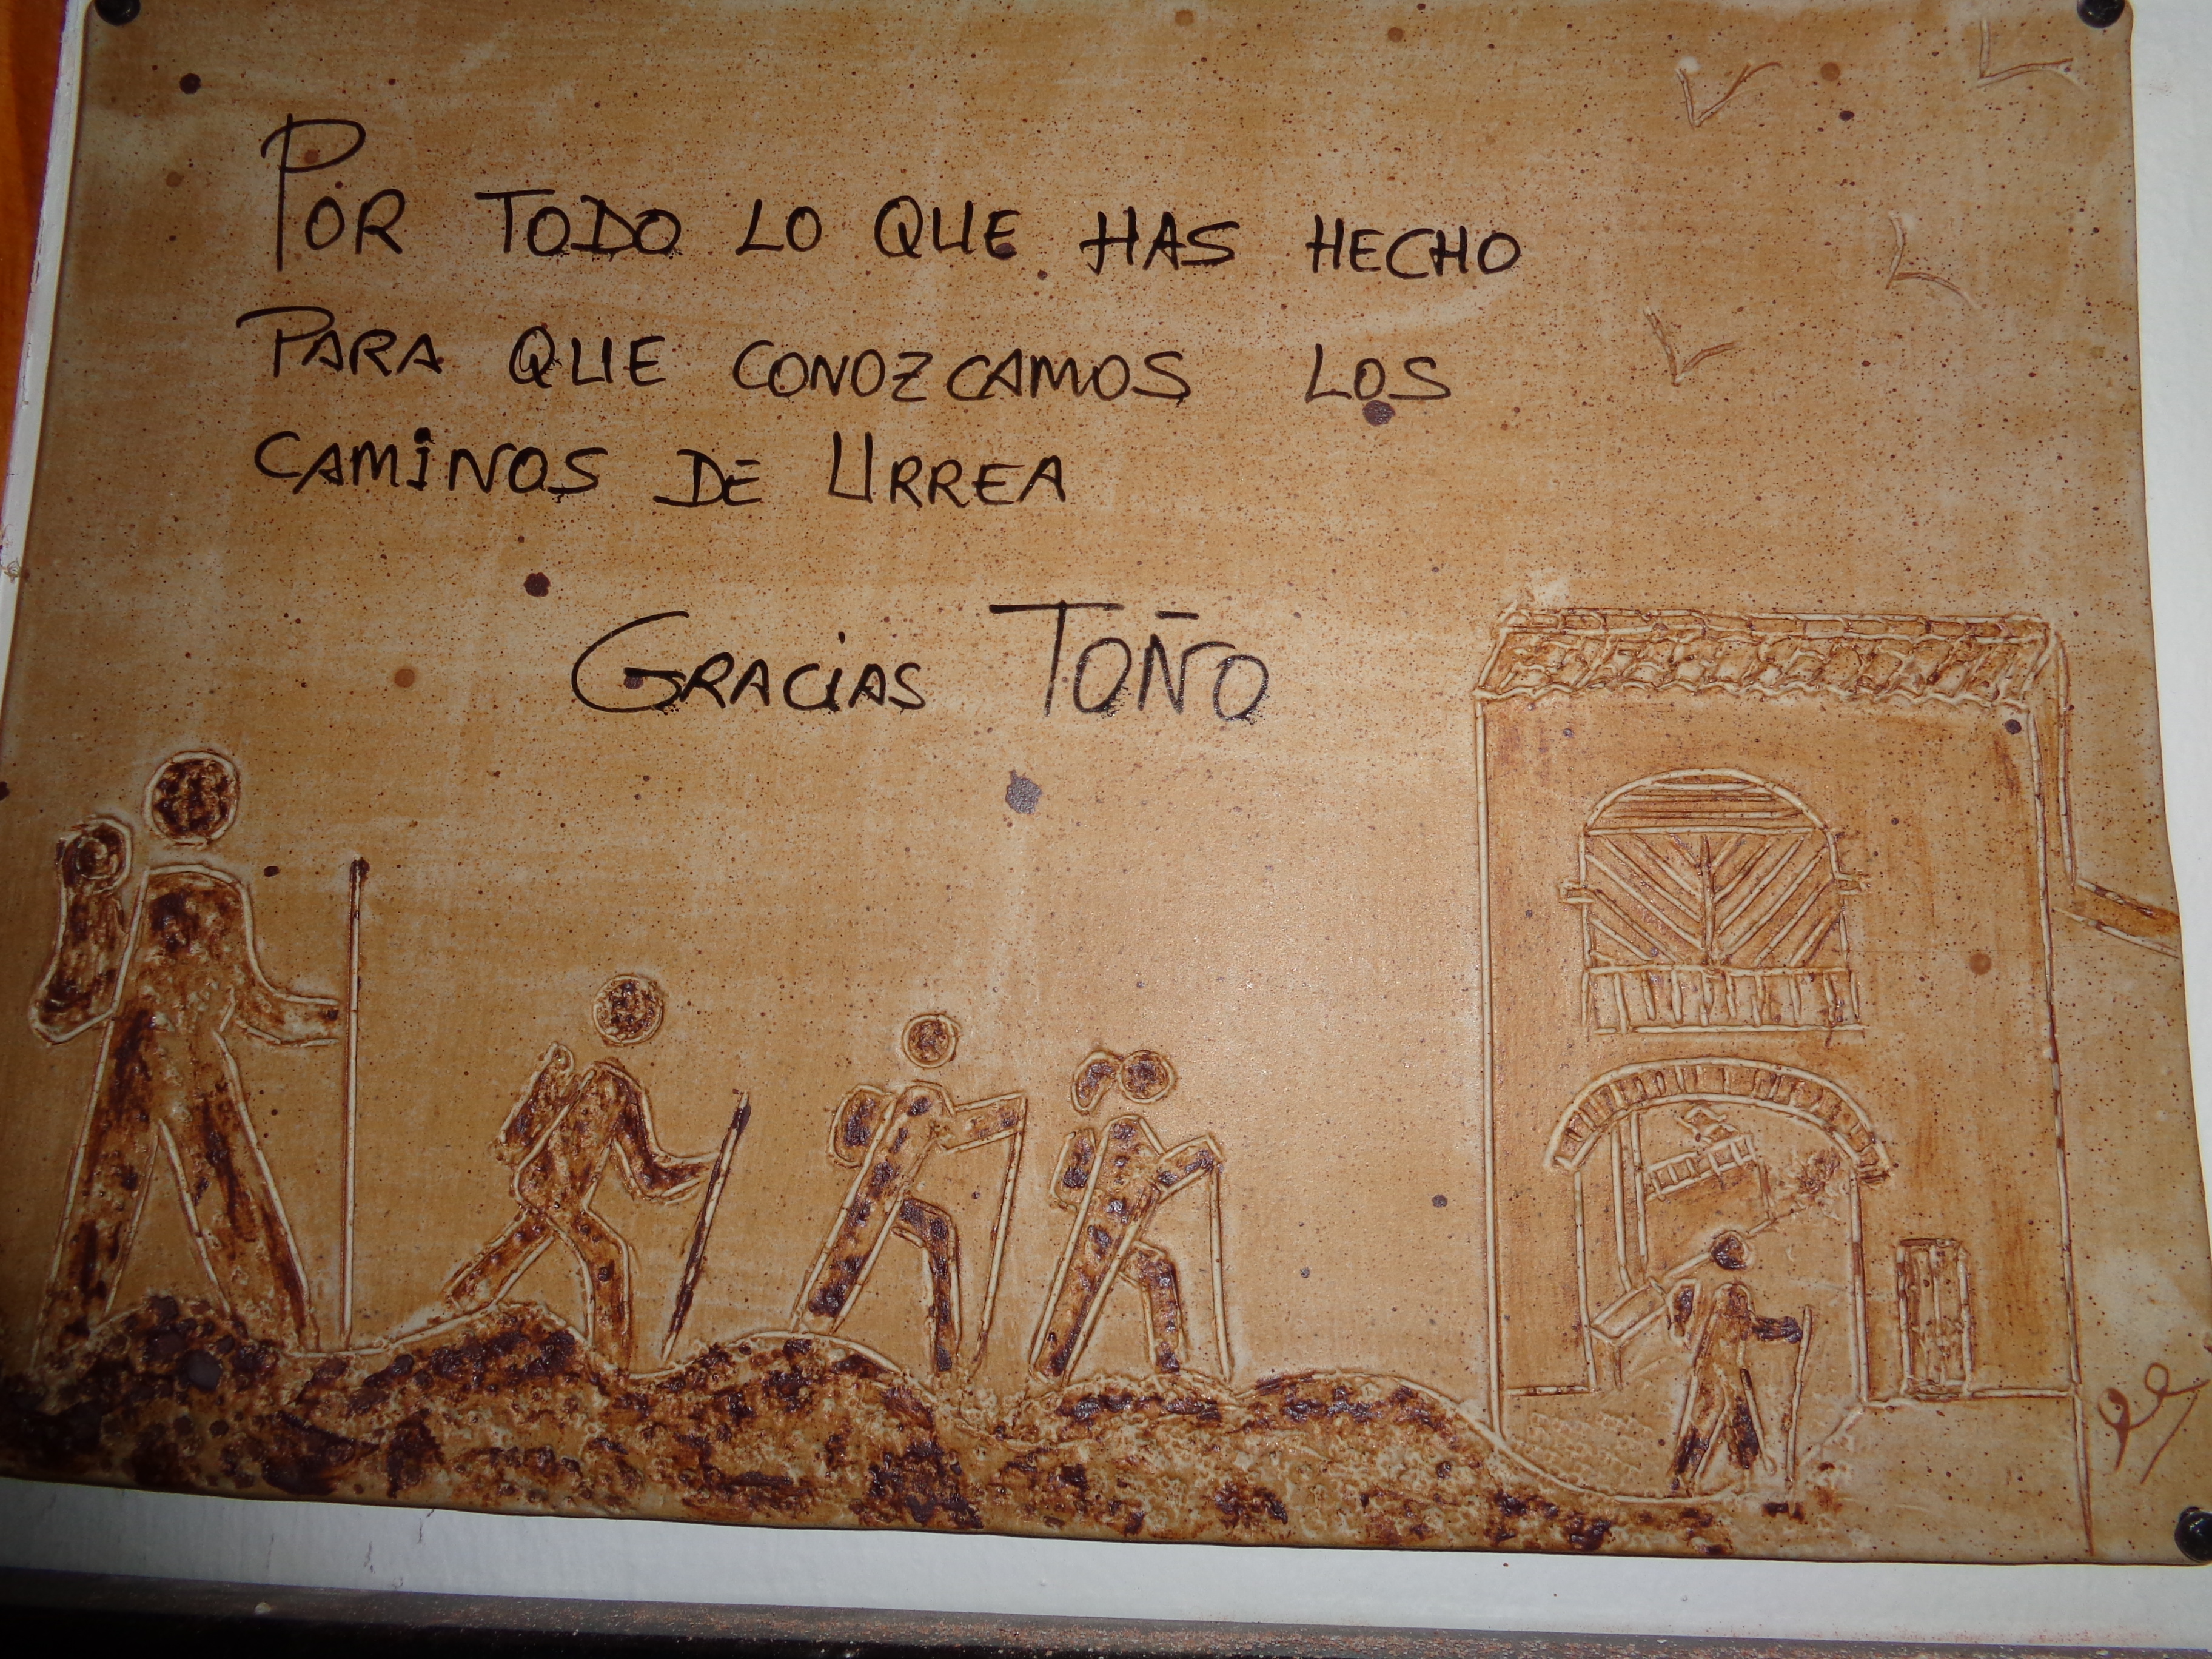 POR TODO LO QUE HAS HECHO
PARA QUE CONOZCAMOS LOS
CAMINOS DE URREA
GRACIAS TOÑO